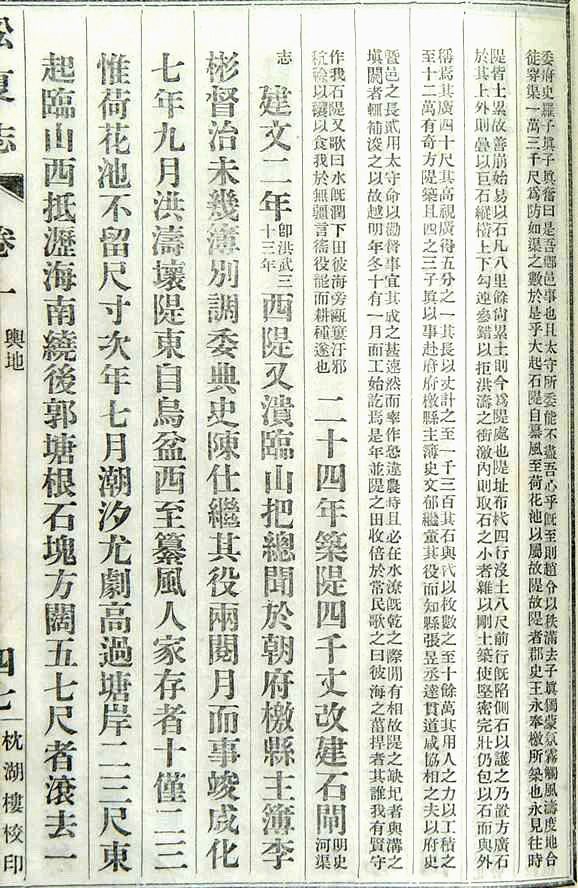 委府史羅子眞子眞奮曰是吾鄕邑事也且太守所委能不盡吾心乎旣至則趙分以秩滿去子眞獨蒙氛霧觸風濤度地合
徒穿渠一萬三千尺爲防如渠之數於是乎大起石隄自纂風至荷花池以屬故隄故隄者郡史王永奉檄所築也永見往時
隄皆土累故善崩始易以石凡八里餘尙累土則今爲隄處也隄址布杙四行沒土八尺前行旣陷側石以護之乃置方廣石
於其上外則疊以巨石縱橫上下勾連參錯以拒洪濤之衝激內則取石之小者雜以剛土築使堅密完壯仍包以石而與外
稱焉其廣四十尺其高視廣得五分之一其長以丈計之至一千三百其石與杙以枚數之至十餘萬其用人之力以工積之
至十二萬有奇方隄築且四之三子眞以事赴府府檄縣主簿史文郁繼董其役而知縣張昱丞達貫道咸協相之夫以府史
曁邑之長貳用太守命以勸督事宜其成之甚速然而率作恐違農時且必在水潦旣乾之際閒有相故隄之缺圮者與溝之
塡閼者輒補浚之以故越明年冬十有一月而工始訖焉是年並隄之田收倍於常民歌之曰彼海之菑捍者其誰我有賢守
作我石隄又歌曰水旣潤下田彼海旁甌窶汙邪
稅稌以穰以食我於無疆言徭役罷而耕種遂也
二十四年築隄四千丈改建石閘 明史
河渠
志
建文二年 卽洪武三
十三年 西隄又潰臨山把總聞於朝府檄縣主簿李
彬督治未幾簿別調委典史陳仕繼其役兩閱月而事竣成化
七年九月洪濤壞隄東自烏盆西至纂風人家存者十僅二三
惟荷花池不留尺寸次年七月潮汐尤劇高過塘岸二三尺東
起臨山西抵瀝海南繞後郭塘根石塊方闊五七尺者滾去一
松夏志
卷一
輿地
四七
枕湖樓校印